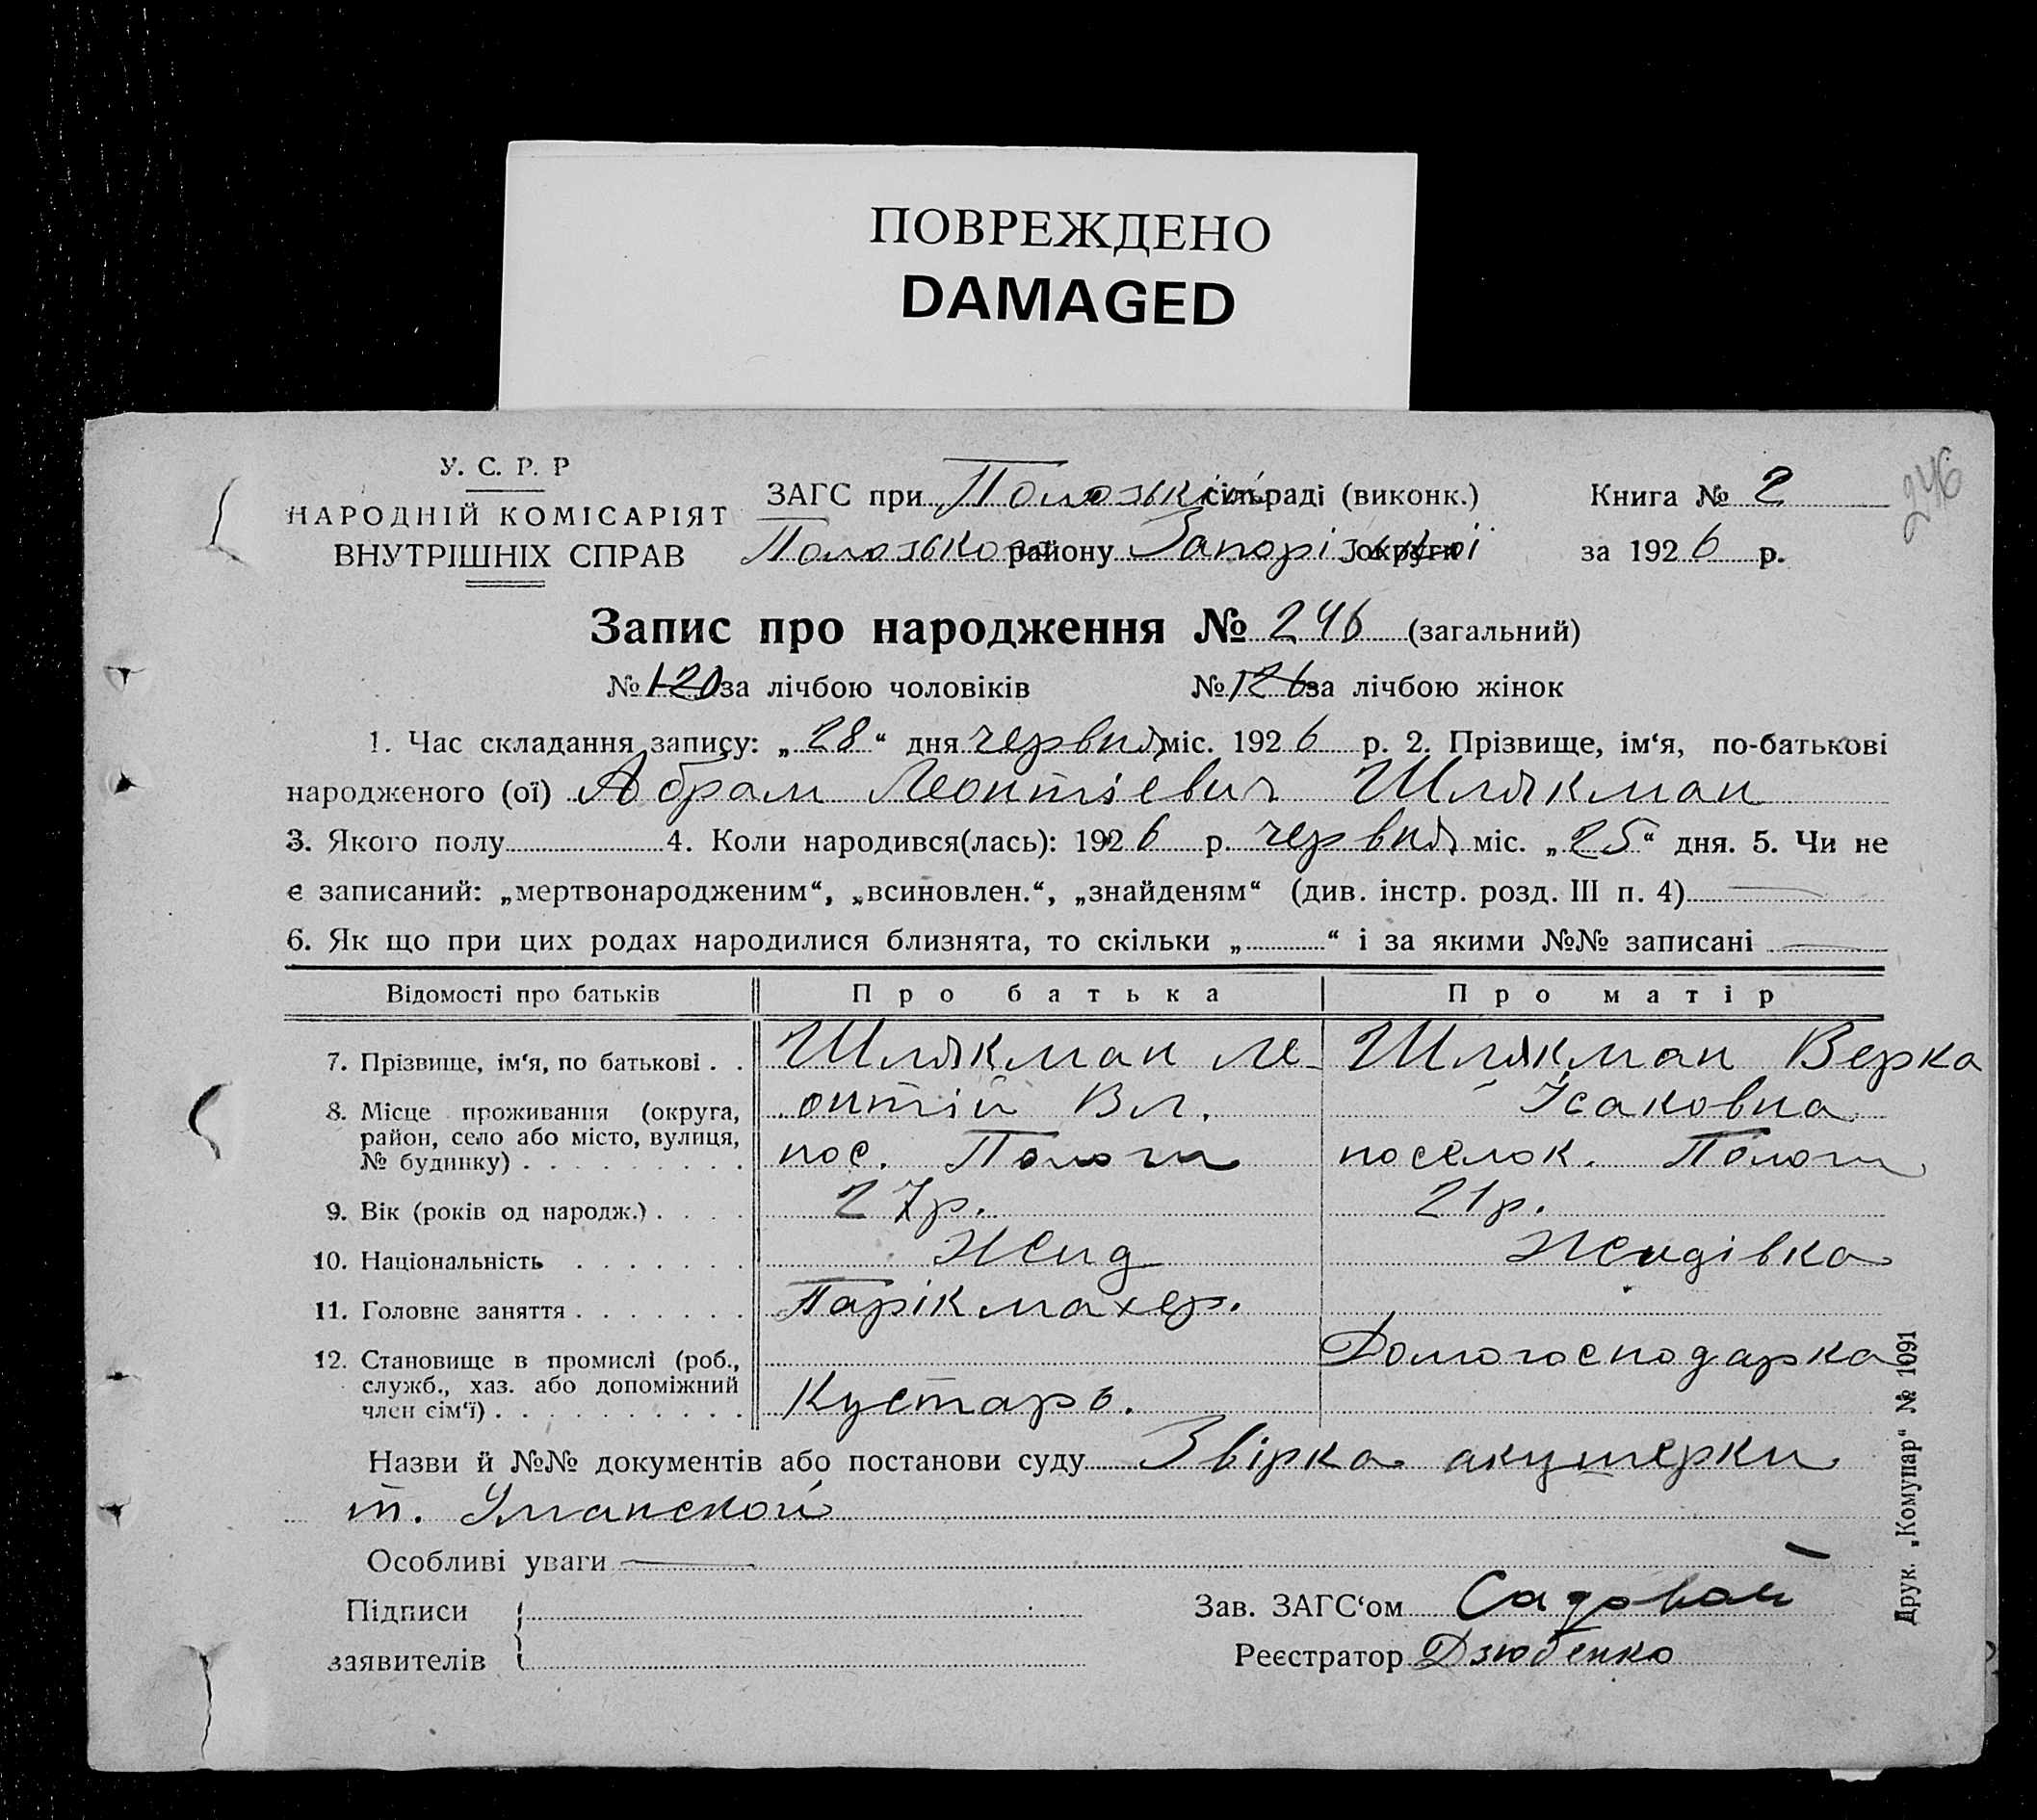 ПОВРЕЖДЕНО
DAMAGED
246
У. С. Р. Р
НАРОДНІЙ КОМІСАРІЯТ
ВНУТРІШНІХ СПРАВ
ЗАГС при Полозькій сільраді (виконк.) Книга № 2
Полозького району Запорізької округи за 1926 р.
Запис про народження № 246 (загальний)
№ 120 за лічбою чоловіків № 126 за лічбою жінок
1. Час складання запису: „28“ дня червня міс. 1926 р. 2. Прізвище, ім‘я, по-батькові
народженого (ої) Абрам Леонтієвич Шлякман
3. Якого полу 4. Коли народився(лась): 1926 р. червня міс. „25“ дня. 5. Чи не
є записаний: „мертвонародженим“, „всиновлен.“, „знайденям“ (див. інстр. розд. III п. 4)
6. Як що при цих родах народилися близнята, то скільки „ “ і за якими №№ записані
Відомості про батьків Про батька Про матір
7. Прізвище, ім‘я, по батькові . . Шлякман Ле- Шлякман Верка
8. Місце проживання (округа, онтій Вл. Ісаковна
район, село або місто, вулиця, пос. Пологи поселок. Пологи
№ будинку) . . . . . . . . .
9. Вік (років од народж.) . . . . 27р. 21р.
10. Національність . . . . . . . Жид Жидівка
11. Головне заняття . . . . . . . Парікмахер.
12. Становище в промислі (роб., Домогосподарка
служб., хаз. або допоміжний Кустарь.
член сім‘ї) . . . . . . . . . .
Назви й №№ документів або постанови суду Звірка акушерки
т. Уманской
Особливі уваги
Підписи Зав. ЗАГС‘ом Садовой
заявителів Реєстратор Дзюбенко
Друк. „Комунар“ № 1091